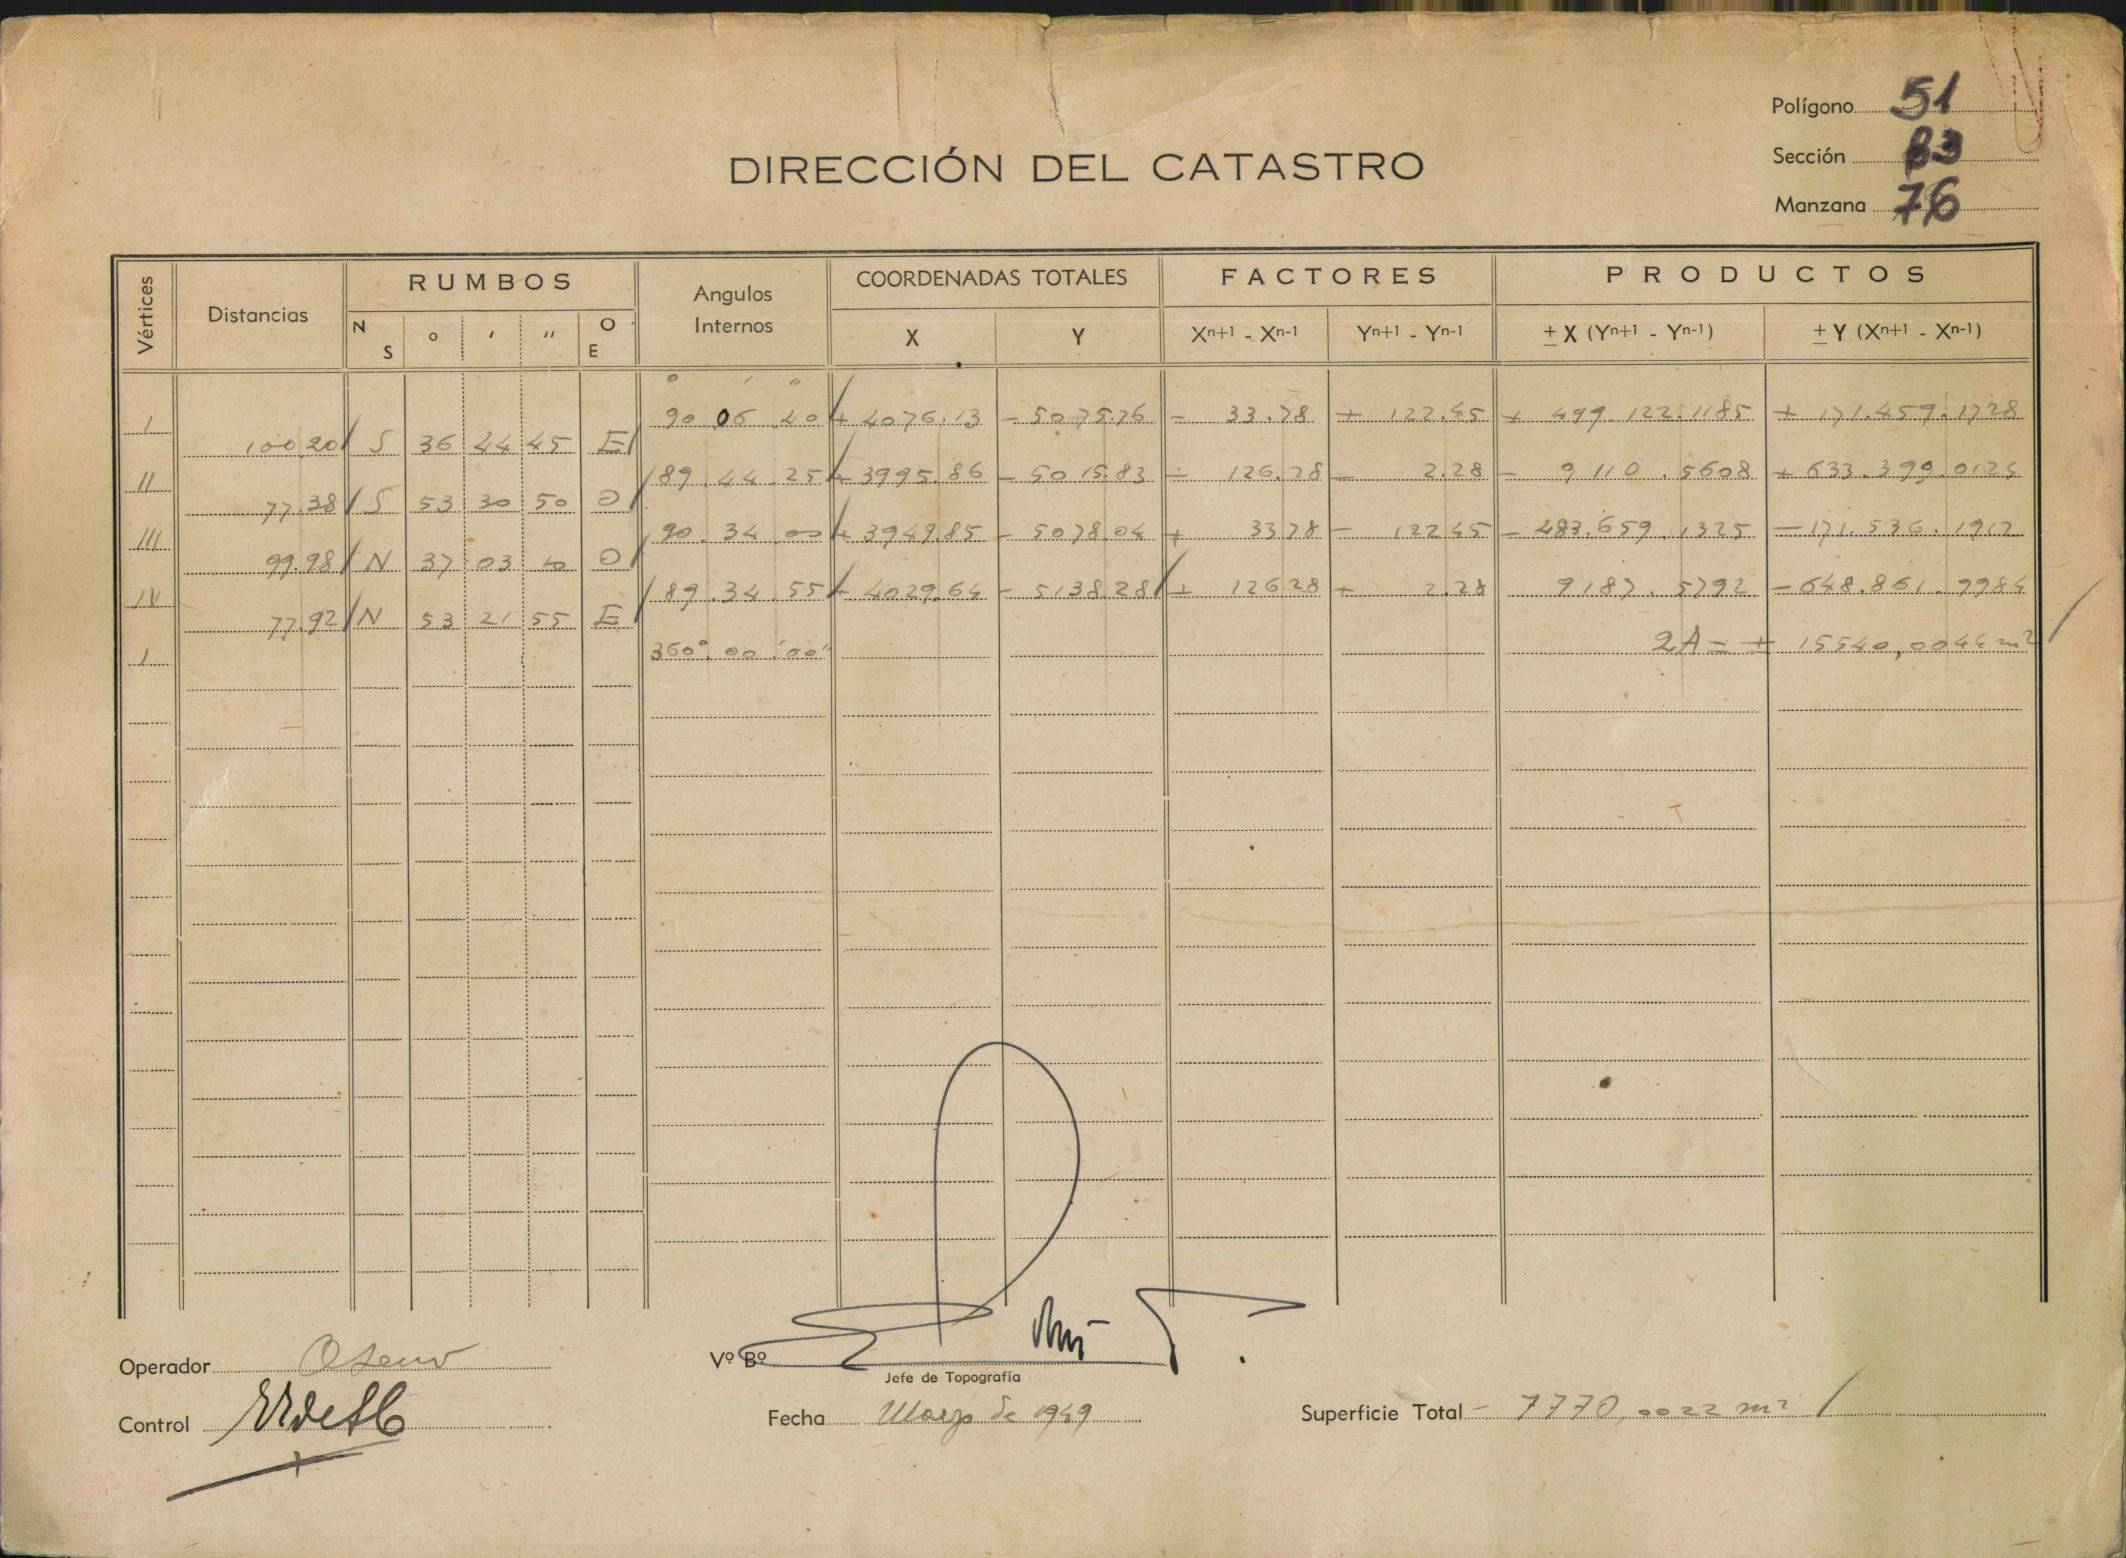 Polígono 51
Sección 83
Manzana 76
DIRECCIÓN DEL CATASTRO
Vértices Distancias RUMBOS Angulos Internos COORDENADAS TOTALES FACTORES PRODUCTOS
N S ° ' " O E X Y Xn+1 - Xn-1 Yn+1 - Yn-1 ± X (Yn+1 - Yn-1) ± Y (Xn+1 - Xn-1)
° ' "
I 90 06 40 + 4076.13 - 5075.76 - 33.78 + 122.45 + 499.122.1185 + 171.459.1728
100.20 S 36 44 45 E
II 89.44.25 + 3995.86 - 5015.83 - 126.28 - 2.28 - 9110.5608 + 633.399.0124
77.38 S 53 30 50 O
III 90.34.00 + 3949.85 - 5078.04 + 33.78 - 122.45 - 483.659.1325 - 171.536.1912
99.98 N 37 03 10 O
IV 89.34.55 + 4029.64 - 5138.28 + 126.28 + 2.28 9187.5792 - 648.861.9984
77.92 N 53 21 55 E
I 360° 00' 00" 2A = + 15540,0044 m²
Operador
Vº Bº
Jefe de Topografía
Control
Fecha Marzo de 1949
Superficie Total - 7770,0022 m²